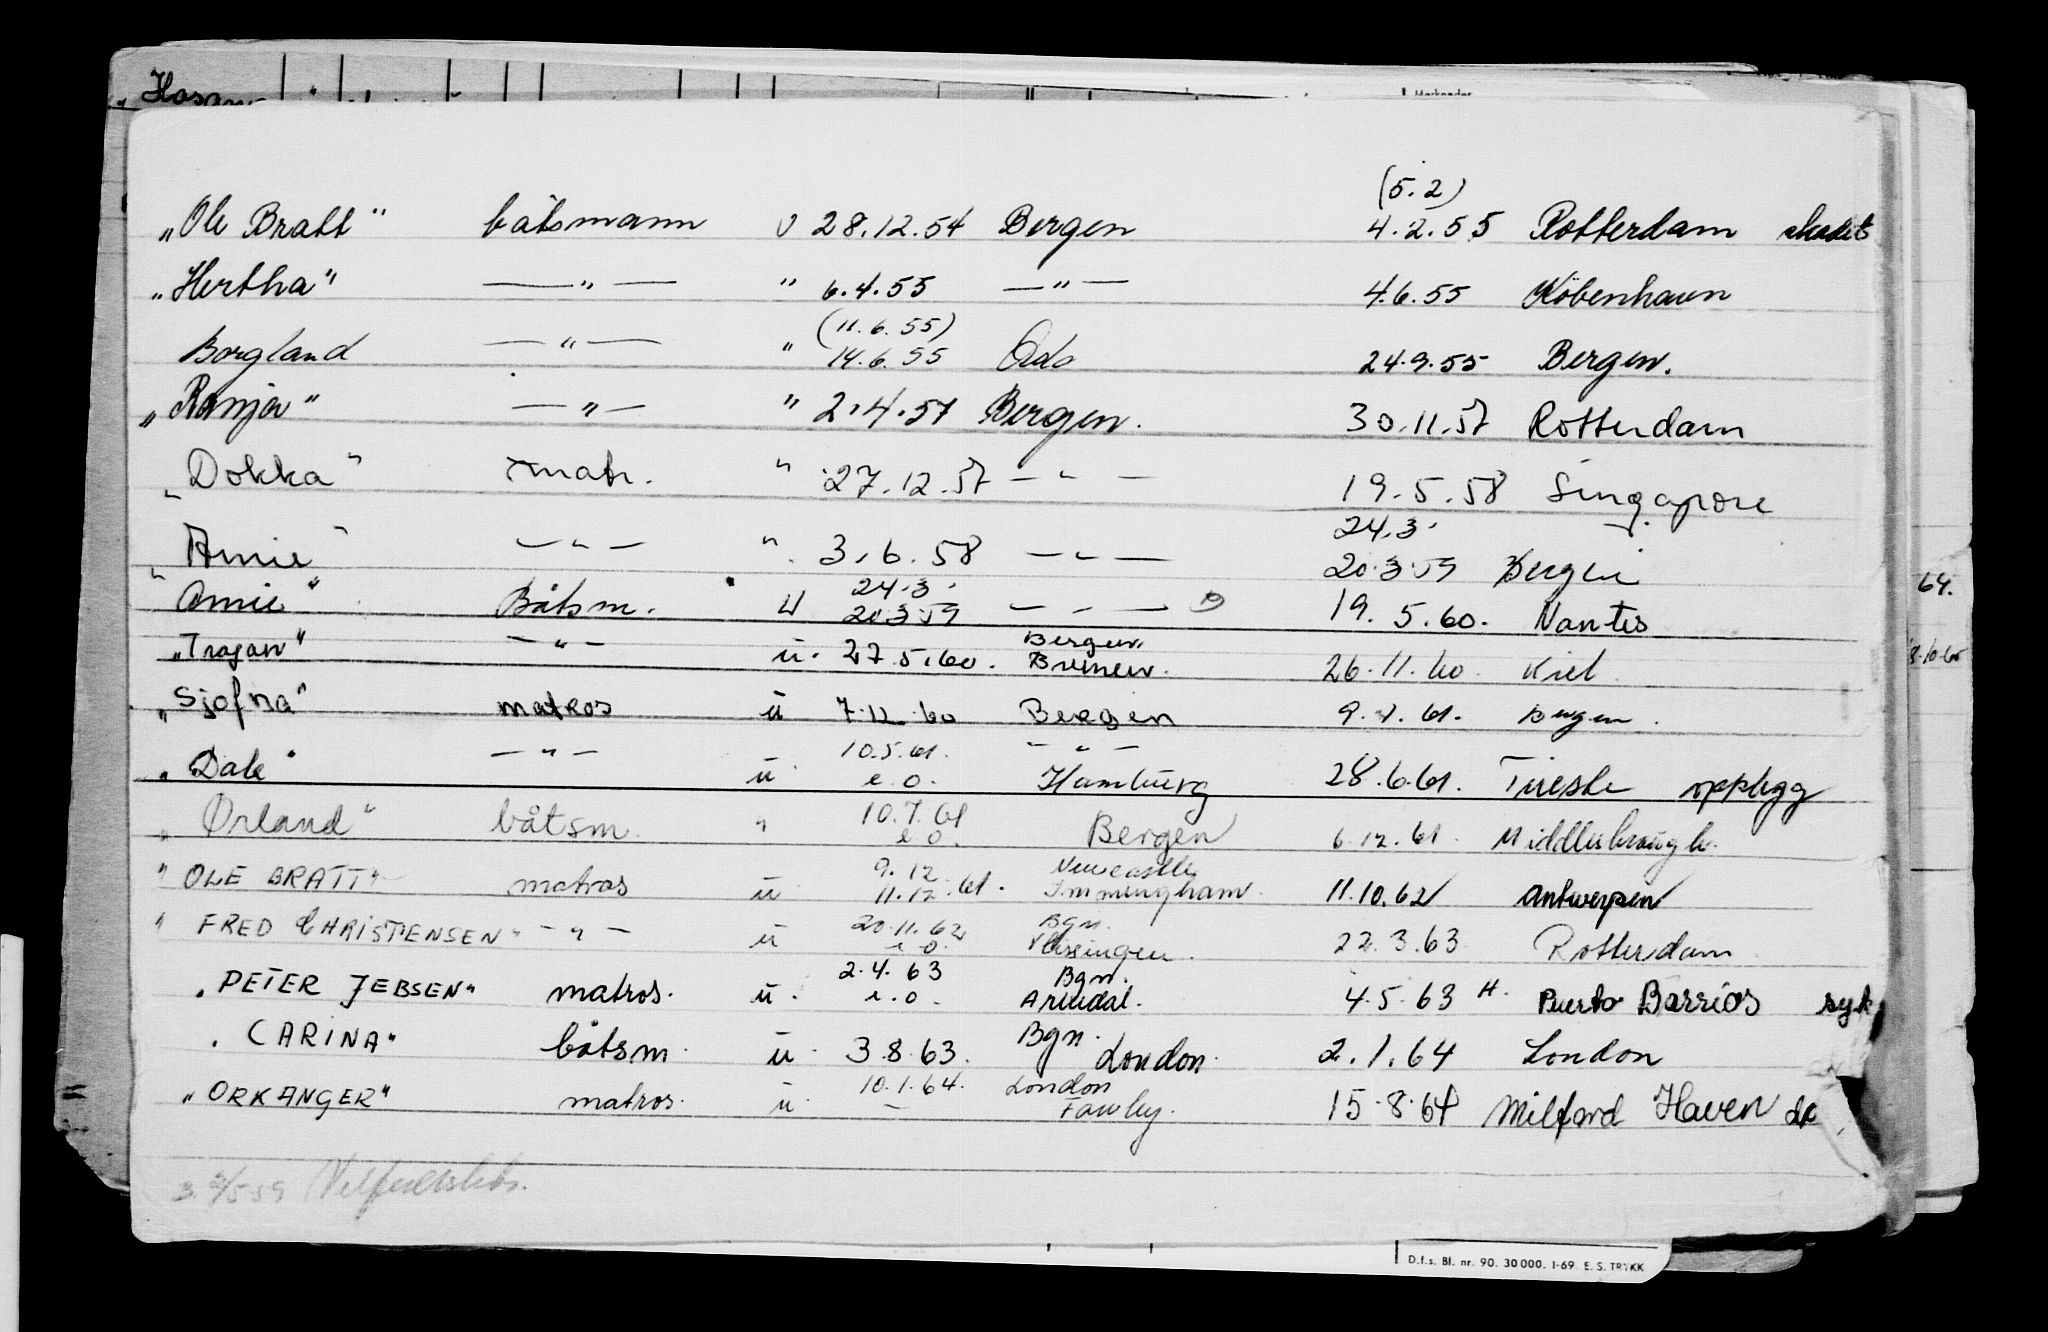 (5.2)
„Ole Bratt" båtsmann u 28.12.54 Bergen 4.2.55 Rotterdam skadet
„Hertha" —"— " 6.4.55 —"— 4.6.55 København
(11.6.55)
Borgland —"— " 14.6.55 Oslo 24.9.55 Bergen.
„Ranja" —"— " 2.4.57 Bergen. 30.11.57 Rotterdam
„Dokka" matr. " 27.12.57 —"— 19.5.58 Singapore
24.3.
„Amie" —"— " 3.6.58 —"— 20.3.59 Bergen
24.3.
Amie" Båtsm. u 20.3.59 —"— 19.5.60. Nantes
Bergen
„Trajan" —"— u. 27.5.60. Bremen. 26.11.60. Kiel
„Sjofna" matros u 7.12.60 Bergen 9.1.61. Bergen.
10.5.61. —"—
„Dale" —"— u e.o. Hamburg 28.6.61. Trieste opplegg
10.7.61
„Ørland" båtsm. " e.o. Bergen 6.12.61. Middlesbrough.
9.12 Newcastle
"OLE BRATT" matros u 11.12.61. Immingham. 11.10.62 Antwerpen
20.11.62 Bgn.
"FRED CHRISTENSEN" —"— u e.o. Vlissingen. 22.3.63 Rotterdam
2.4.63 Bgn.
„PETER JEBSEN" matros. u. e.o. Arendal. 4.5.63 H. Puerto Barrios syk
Bgn.
„CARINA" båtsm. u 3.8.63. London. 2.1.64 London
10.1.64. London
„ORKANGER" matros. u — Fawley. 15.8.64 Milford Haven
64.
D.f.s. Bl. nr. 90. 30000. 1-69. E. S. TRYKK